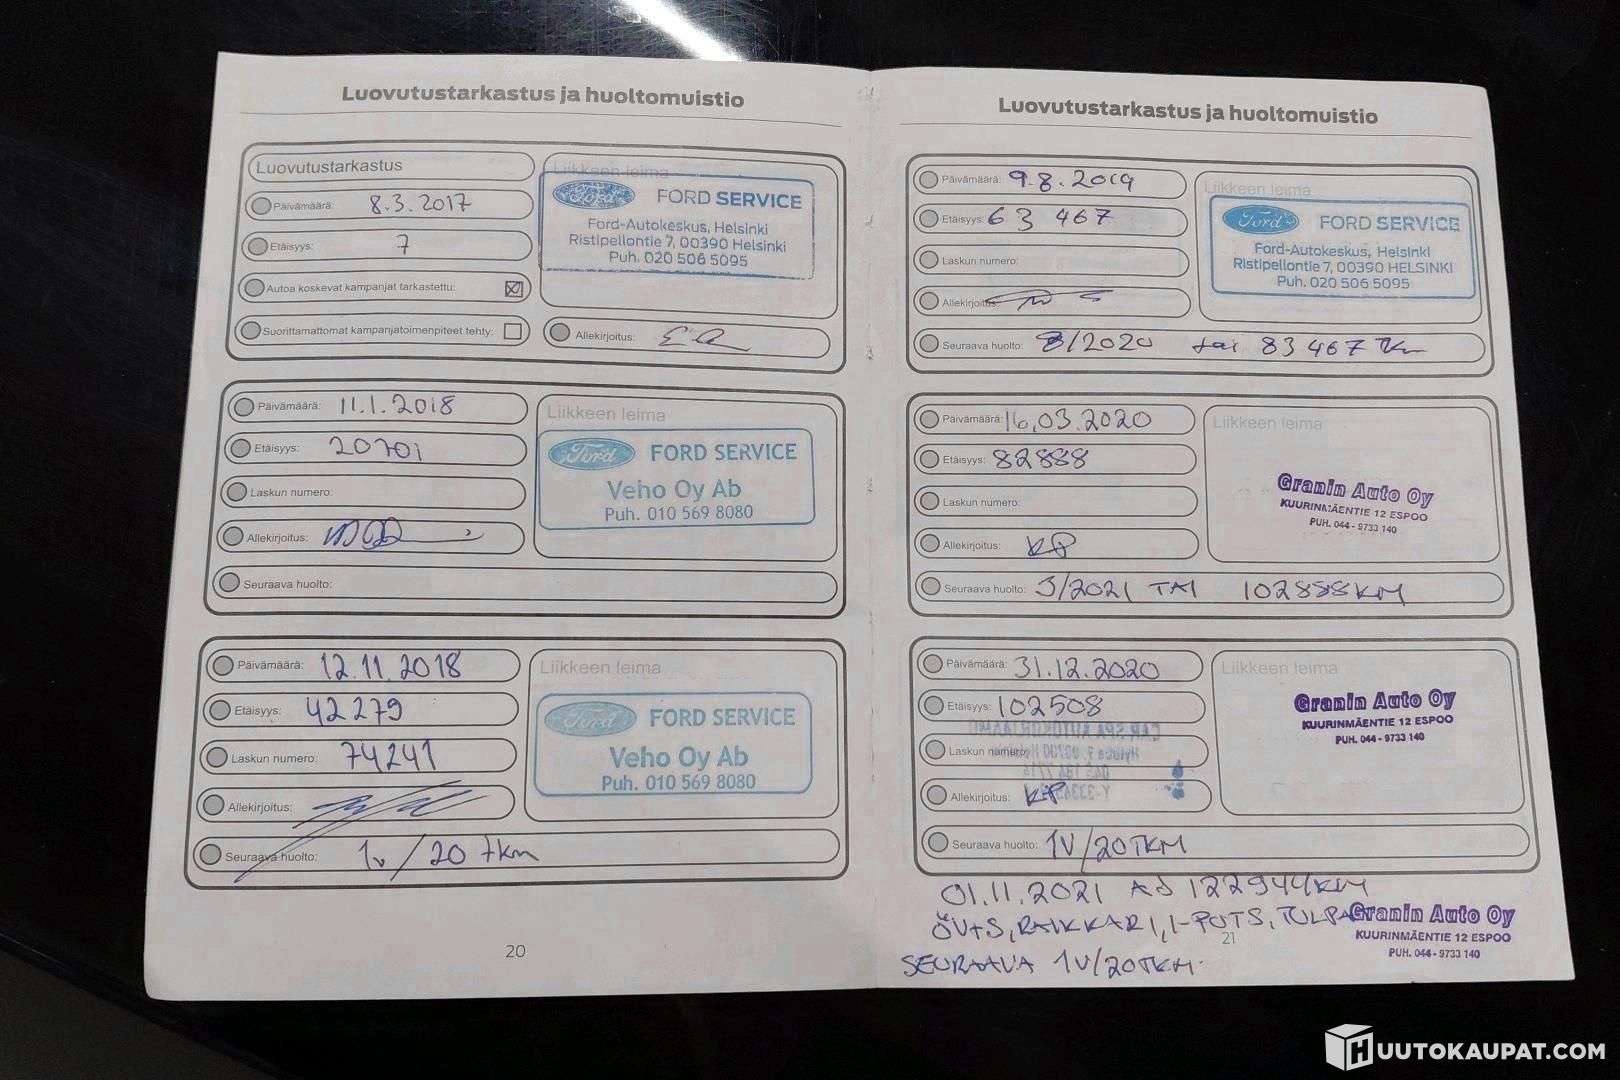 Luovutustarkastus ja huoltomuistio
Luovutustarkastus
Päivämäärä: 8.3.2017
Etäisyys: 7
Autoa koskevat kampanjat tarkastettu:
Suorittamattomat kampanjatoimenpiteet tehty:
Liikkeen leima
Ford FORD SERVICE
Ford-Autokeskus, Helsinki
Ristipellontie 7, 00390 Helsinki
Puh. 020 506 5095
Allekirjoitus:
Päivämäärä: 11.1.2018
Etäisyys: 20701
Laskun numero:
Allekirjoitus:
Seuraava huolto:
Liikkeen leima
Ford FORD SERVICE
Veho Oy Ab
Puh. 010 569 8080
Päivämäärä: 12.11.2018
Etäisyys: 42279
Laskun numero: 74241
Allekirjoitus:
Seuraava huolto: 1v / 20 tkm
Liikkeen leima
Ford FORD SERVICE
Veho Oy Ab
Puh. 010 569 8080
20
Luovutustarkastus ja huoltomuistio
Päivämäärä: 9.8.2019
Etäisyys: 63 467
Laskun numero:
Allekirjoitus:
Seuraava huolto: 8/2020 tai 83 467 Tkm
Liikkeen leima
Ford FORD SERVICE
Ford-Autokeskus, Helsinki
Ristipellontie 7, 00390 HELSINKI
Puh. 020 506 5095
Päivämäärä: 16,03.2020
Etäisyys: 82888
Laskun numero:
Allekirjoitus: KP
Seuraava huolto: 3/2021 TAI 102888KM
Liikkeen leima
Granin Auto Oy
KUURINMÄENTIE 12 ESPOO
PUH. 044 - 9733 140
Päivämäärä: 31.12.2020
Etäisyys: 102508
Laskun numero:
Allekirjoitus: KP
Seuraava huolto: 1V/20TKM
Liikkeen leima
Granin Auto Oy
KUURINMÄENTIE 12 ESPOO
PUH. 044 - 9733 140
01.11.2021 AJ 122944KM
ÖV+S, RAIKKARI, I-PUTS, TULPAT
SEURAAVA 1V/20TKM.
Granin Auto Oy
KUURINMÄENTIE 12 ESPOO
PUH. 044 - 9733 140
21
HUUTOKAUPAT.COM